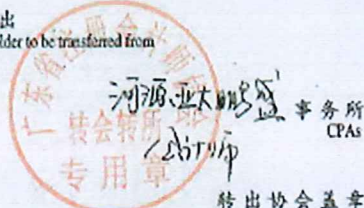 出
lder to be transferred from
广东省注册会计师协会
转会转所
专用章
河源亚太鹏盛 事务所
CPAs
会计师
转出协会盖章